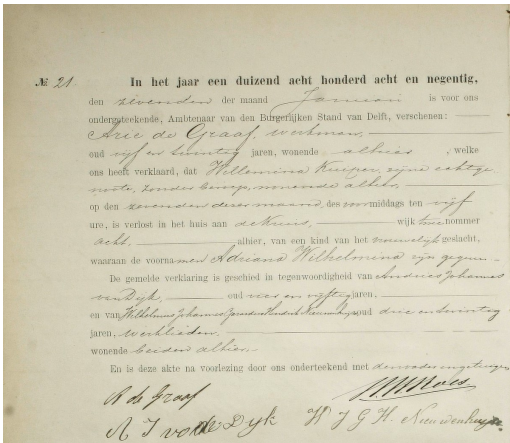 No 21. In het jaar een duizend acht honderd acht en negentig,
den zevenden der maand Januari is voor ons
ondergeteekende, Ambtenaar van den Burgerlijken Stand van Delft, verschenen:
Arie de Graaf, werkman,
oud vijf en twintig jaren, wonende alhier, welke
ons heeft verklaard, dat Willemina Kuiper, zijne echtge
noote, zonder beroep, wonende alhier,
op den zevenden dezer maand, des voormiddags ten vijf
ure, is verlicht in het huis aan de wijk twee nommer
acht, alhier, van een kind van het vrouwelijk geslacht,
waaraan de voornamen Adriana Wilhelmina zijn gegeven.
De gemelde verklaring is geschied in tegenwoordigheid van Andries Johannes
van Dijk, oud vier en vijftig jaren,
en van Wilhelmus Johannes oud drie en twintig
jaren, werklieden,
wonende beiden alhier.
En is deze akte na voorlezing door ons onderteekend met
A de Graaf
A J v Dyk W J G H Nieuwenhuijse